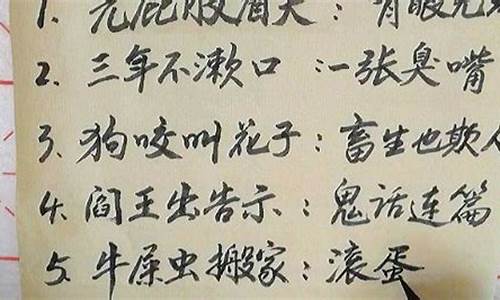 1. 光屁股眉天：有眼无
2. 三年不漱口：一张臭嘴
3. 狗咬叫花子：畜生也欺人
4. 阎王出告示：鬼话连篇
5. 牛屎虫搬家：滚蛋